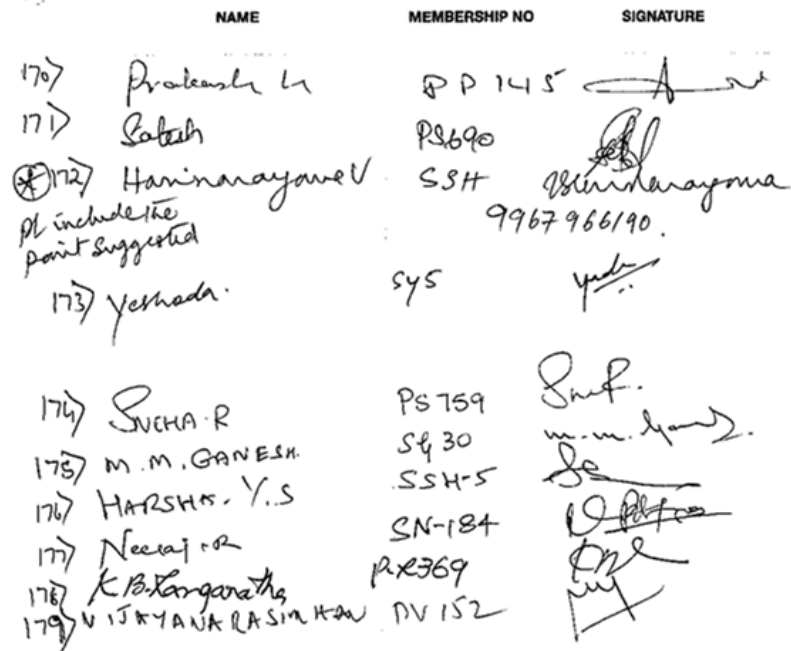 NAME MEMBERSHIP NO SIGNATURE
170) Prakash h PP 145
171) Satish PS690
172) Harinarayana V SSH
9967966190.
pl include the
point suggested
173) Yeshoda. SY5
174) SNEHA.R PS759
175) M.M.GANESH. SG 30 m.m.
176) HARSHA.Y.S SSH-5
177) Neeraj.R SN-184
178) K.B.Rangaratha 369
179) VIJAYANARASIMHAN DV 152